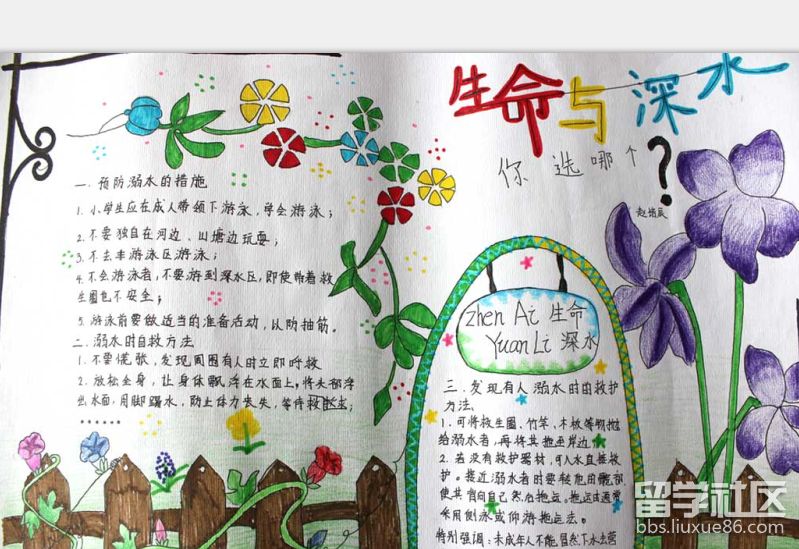 生命与深水
你选哪个?
一.预防溺水的措施
1.小学生应在成人带领下游泳,学会游泳;
2.不要独自在河边、山塘边玩耍;
3.不去非游泳区游泳;
4.不会游泳者,不要游到深水区,即使带着救
生圈也不安全;
5.游泳前要做适当的准备活动,以防抽筋。
二.溺水时自救方法
1.不要慌张,发现周围有人时立即呼救
2.放松全身,让身体飘浮在水面上,将头部浮
出水面,用脚踢水,防止体力丧失,等待救
······
zhen Ai 生命
Yuan Li 深水
三.发现有人溺水时的救护
方法.
1.可将救生圈、竹竿、木板等物抛
给溺水者,再将其拖至岸边
2.若没有救护器材,可入水直接救
护。接近溺水者时要转
使其背向自己然后拖运。拖运时通常
采用侧泳或仰泳拖运法。
特别强调:未成年人不能冒然下水去营
留学社区
bbs.liuxue86.com